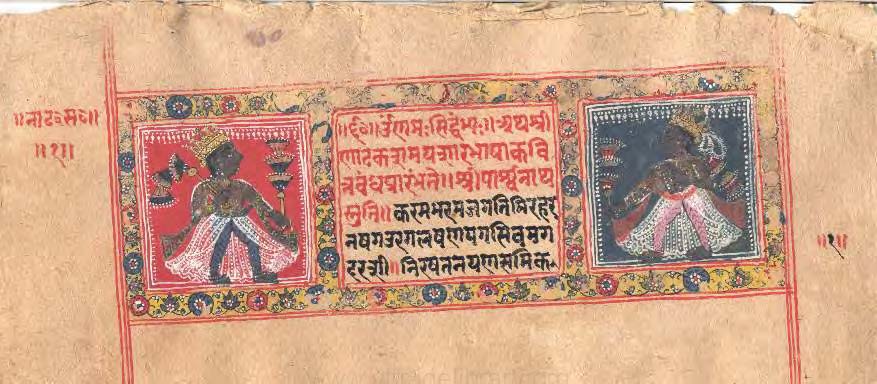 ॥नाट॰स॰॥
॥१॥
नमःसिद्धेभ्यः॥अथश्री
णाटकसमयसारभाषाकवि
त्तबंधप्रारंभते॥श्रीपार्श्वनाथ
स्तुति॥करमभरमजगतिमिरहर
नषगउरगलषणपगसिवमग
दरसी॥निरषतनयण
॥१॥